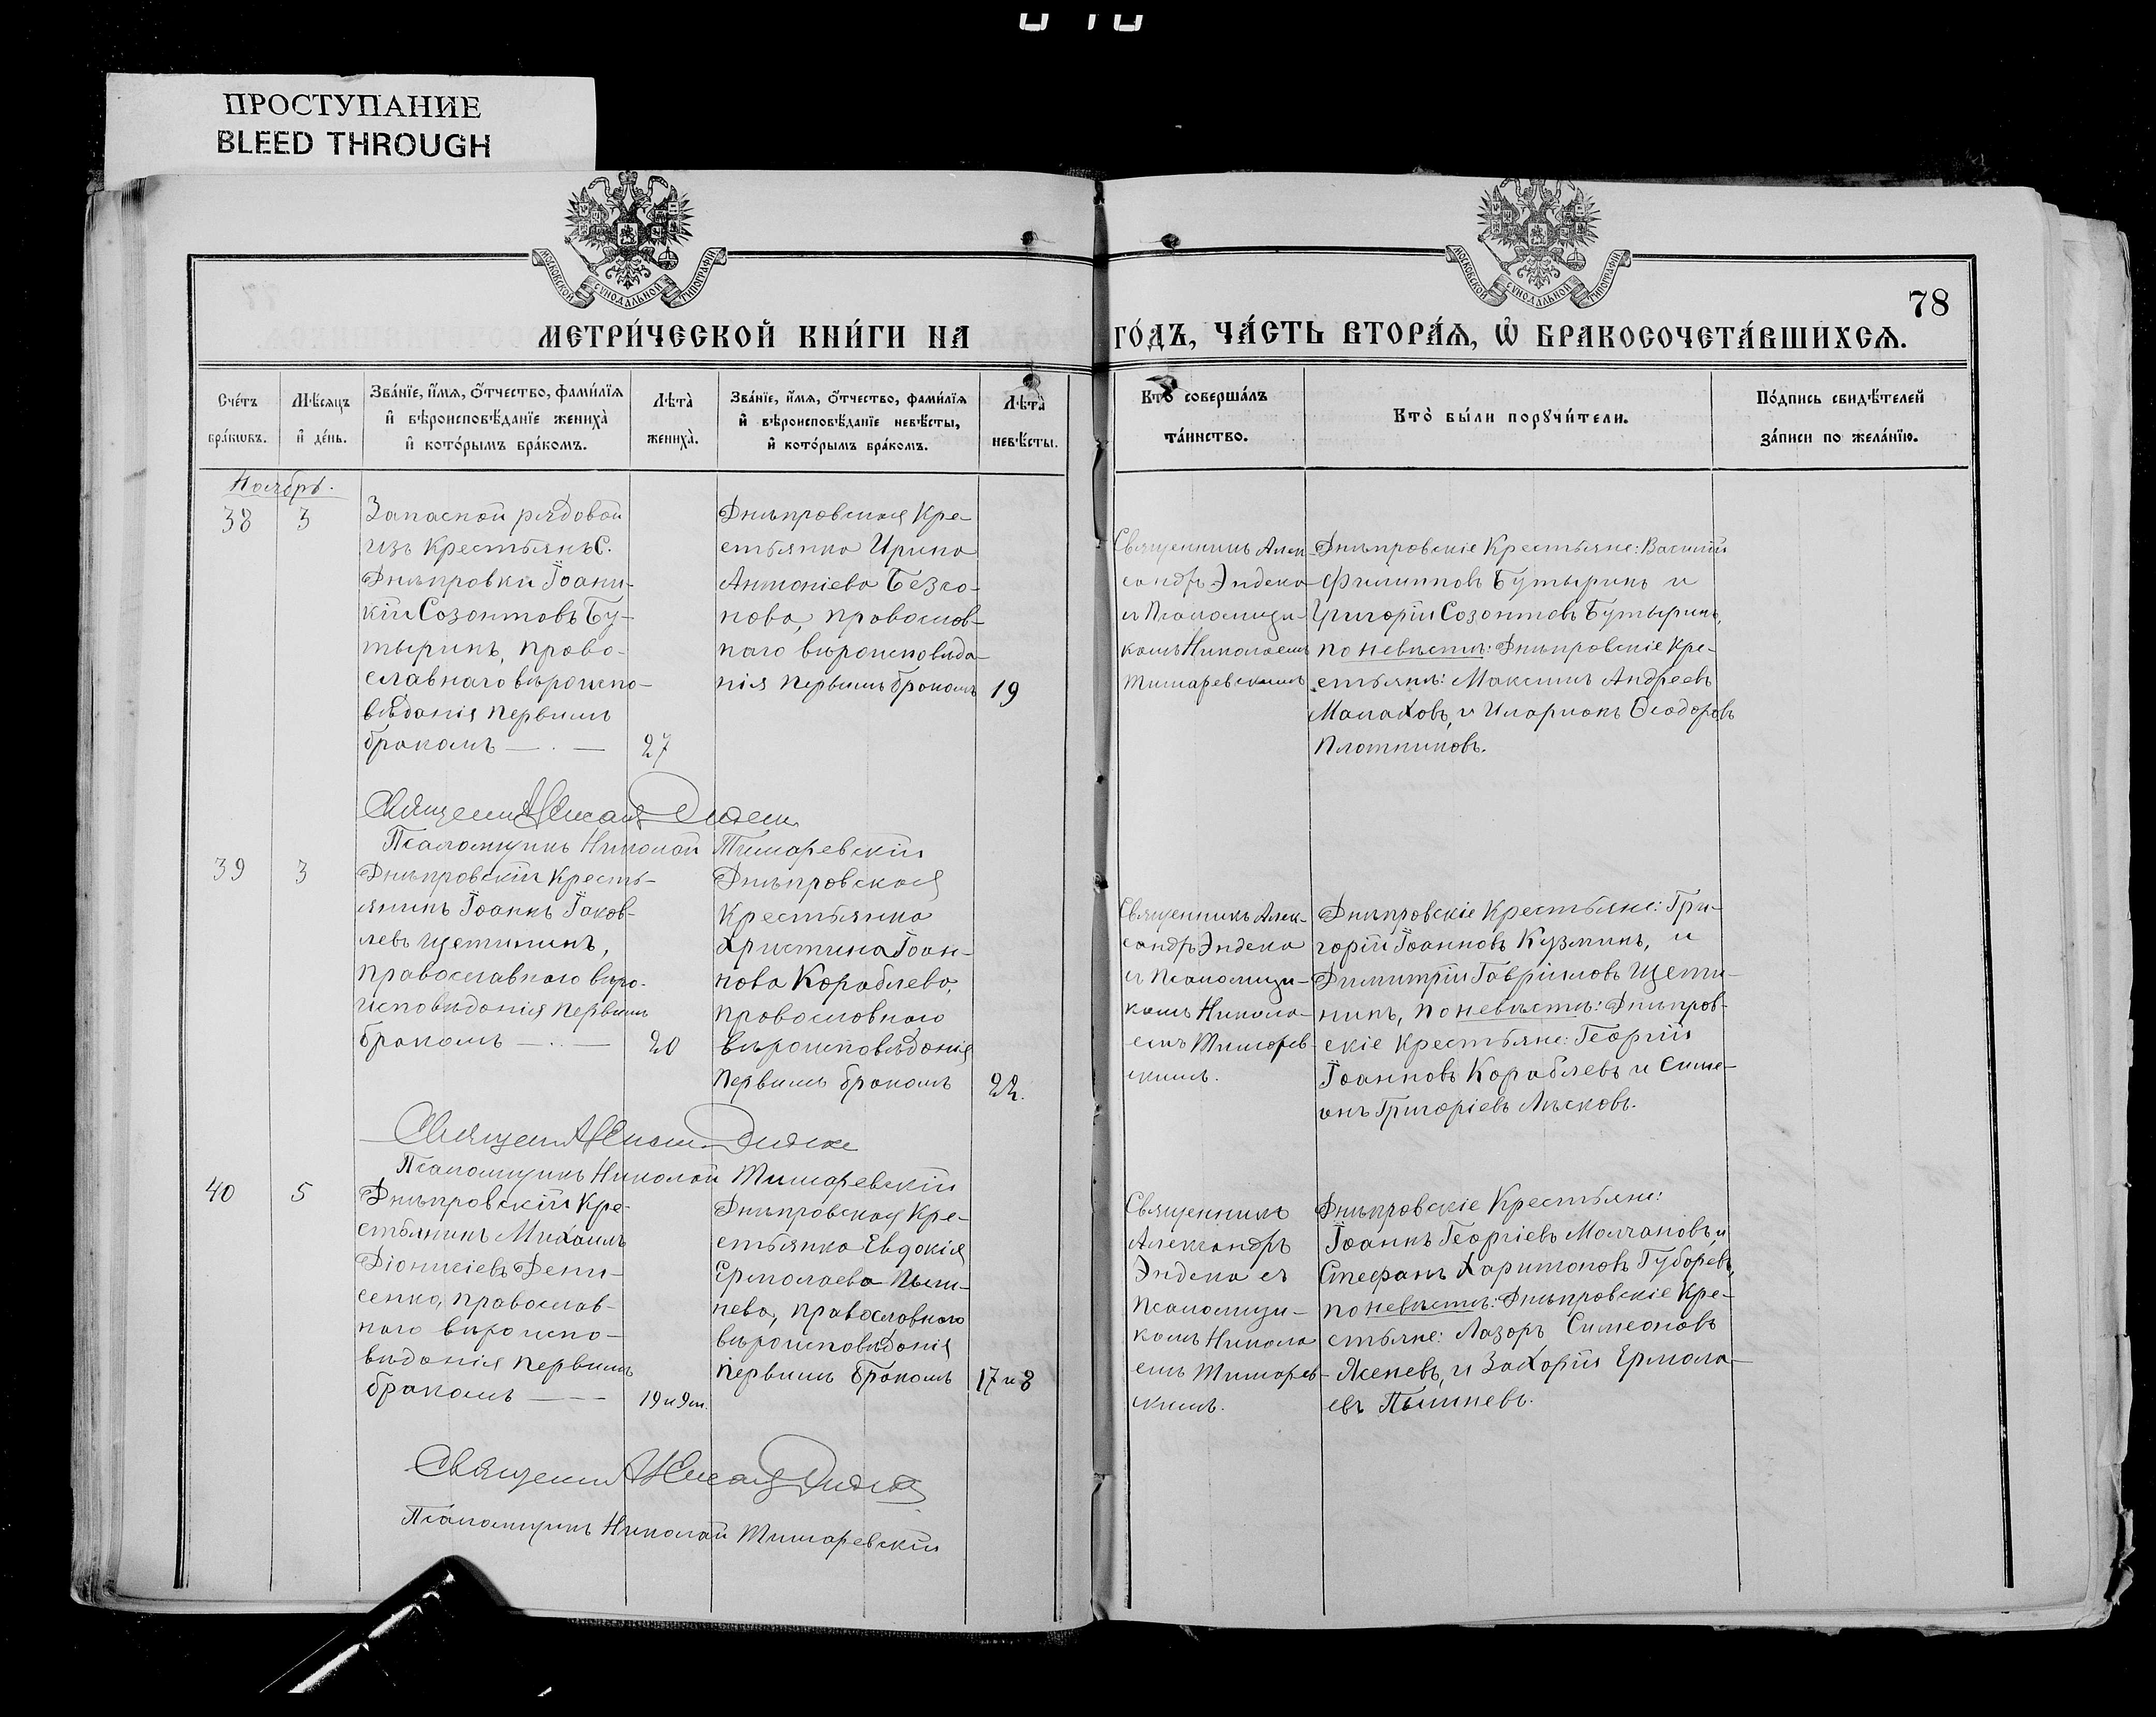 ПРОСТУПАНИЕ
BLEED THROUGH
МОСКОВСКОЙ СѴНОДАЛЬНОЙ ТИПОГРАФІИ
МОСКОВСКОЙ СѴНОДАЛЬНОЙ ТИПОГРАФІИ
78
МЕТРИ́ЧЕСКОЙ КНИ́ГИ НА
ГО́ДЪ, ЧА́СТЬ ВТОРА́Ѧ, Ѡ҆ БРАКОСОЧЕТА́ВШИХСѦ.
Сче́тъ
бра́кѡвъ.
Мѣ́сяцъ
и҆ де́нь.
Зва́нїе, и҆́мѧ, ѻ҆́тчество, фами́лїѧ
и҆ вѣроисповѣ́данїе жениха̀
и҆ кото́рымъ бра́комъ.
Лѣ́та̀
жениха̀.
Зва́нїе, и҆́мѧ, ѻ҆́тчество, фами́лїѧ
и҆ вѣроисповѣ́данїе невѣ́сты,
и҆ кото́рымъ бра́комъ.
Лѣ́та̀
невѣ́сты.
Кто̀ соверша́лъ
та́инство.
Кто̀ бы́ли порꙋчи́тели.
По́дпись свидѣ́телей
за́писи по жела́нїю.
Ноябрь.
38
3
Запасной рядовой
изъ Крестьянъ С.
Днѣпровки Іоани-
кій Созонтовъ Бу-
тыринъ, право-
славнаго вѣроиспо-
вѣданія первымъ
бракомъ — . —
27
Днѣпровская Кре-
стьянка Ирина
Антоніева Безко-
нова, православ-
наго вѣроисповѣда-
нія первымъ бракомъ
19
Священникъ Алек-
сандръ Эндека
съ Псаломщи-
комъ Николаемъ
Тимаревскимъ
Днѣпровскіе Крестьяне: Василій
Филипповъ Бутыринъ и
Григорій Созонтовъ Бутыринъ,
по невѣстѣ: Днѣпровскіе Кре-
стьяне: Максимъ Андреевъ
Малаховъ, и Иларіонъ Ѳеодоровъ
Плотниковъ.
Псаломщикъ Николай Тимаревскій
39
3
Днѣпровскій Кресть-
янинъ Іоаннъ Іаков-
левъ Щетининъ,
православнаго вѣро-
исповѣданія первымъ
бракомъ — . . —
20
Днѣпровская
Крестьянка
Христина Іоан-
нова Кораблева,
православнаго
вѣроисповѣданія
первымъ бракомъ
22.
Священникъ Алек-
сандръ Эндека
съ Псаломщи-
комъ Никола-
емъ Тимарев-
скимъ.
Днѣпровскіе Крестьяне: Гри-
горій Іоанновъ Кузминъ, и
Димитрій Гавріиловъ Щети-
нинъ, по невѣстѣ: Днѣпров-
скіе Крестьяне: Георгій
Іоанновъ Кораблевъ и Симе-
онъ Григоріевъ Лѣсковъ.
Псаломщикъ Николай Тимаревскій
40
5
Днѣпровскій Кре-
стьянинъ Михаилъ
Діонисіевъ Дени-
сенко, православ-
наго вѣроиспо-
вѣданія первымъ
бракомъ — —
19 и 9 м.
Днѣпровская Кре-
стьянка Евдокія
Ермолаева Пыш-
нева, православнаго
вѣроисповѣданія
первымъ бракомъ
17 и 8
Священникъ
Александръ
Эндека съ
Псаломщи-
комъ Никола
емъ Тимарев-
скимъ.
Днѣпровскіе Крестьяне:
Іоаннъ Георгіевъ Молчановъ, и
Стефанъ Харитоновъ Губоревъ,
по невѣстѣ: Днѣпровскіе Кре-
стьяне: Лазарь Симеоновъ
Ясеневъ, и Захарій Ермола-
евъ Пышневъ.
Псаломщикъ Николай Тимаревскій